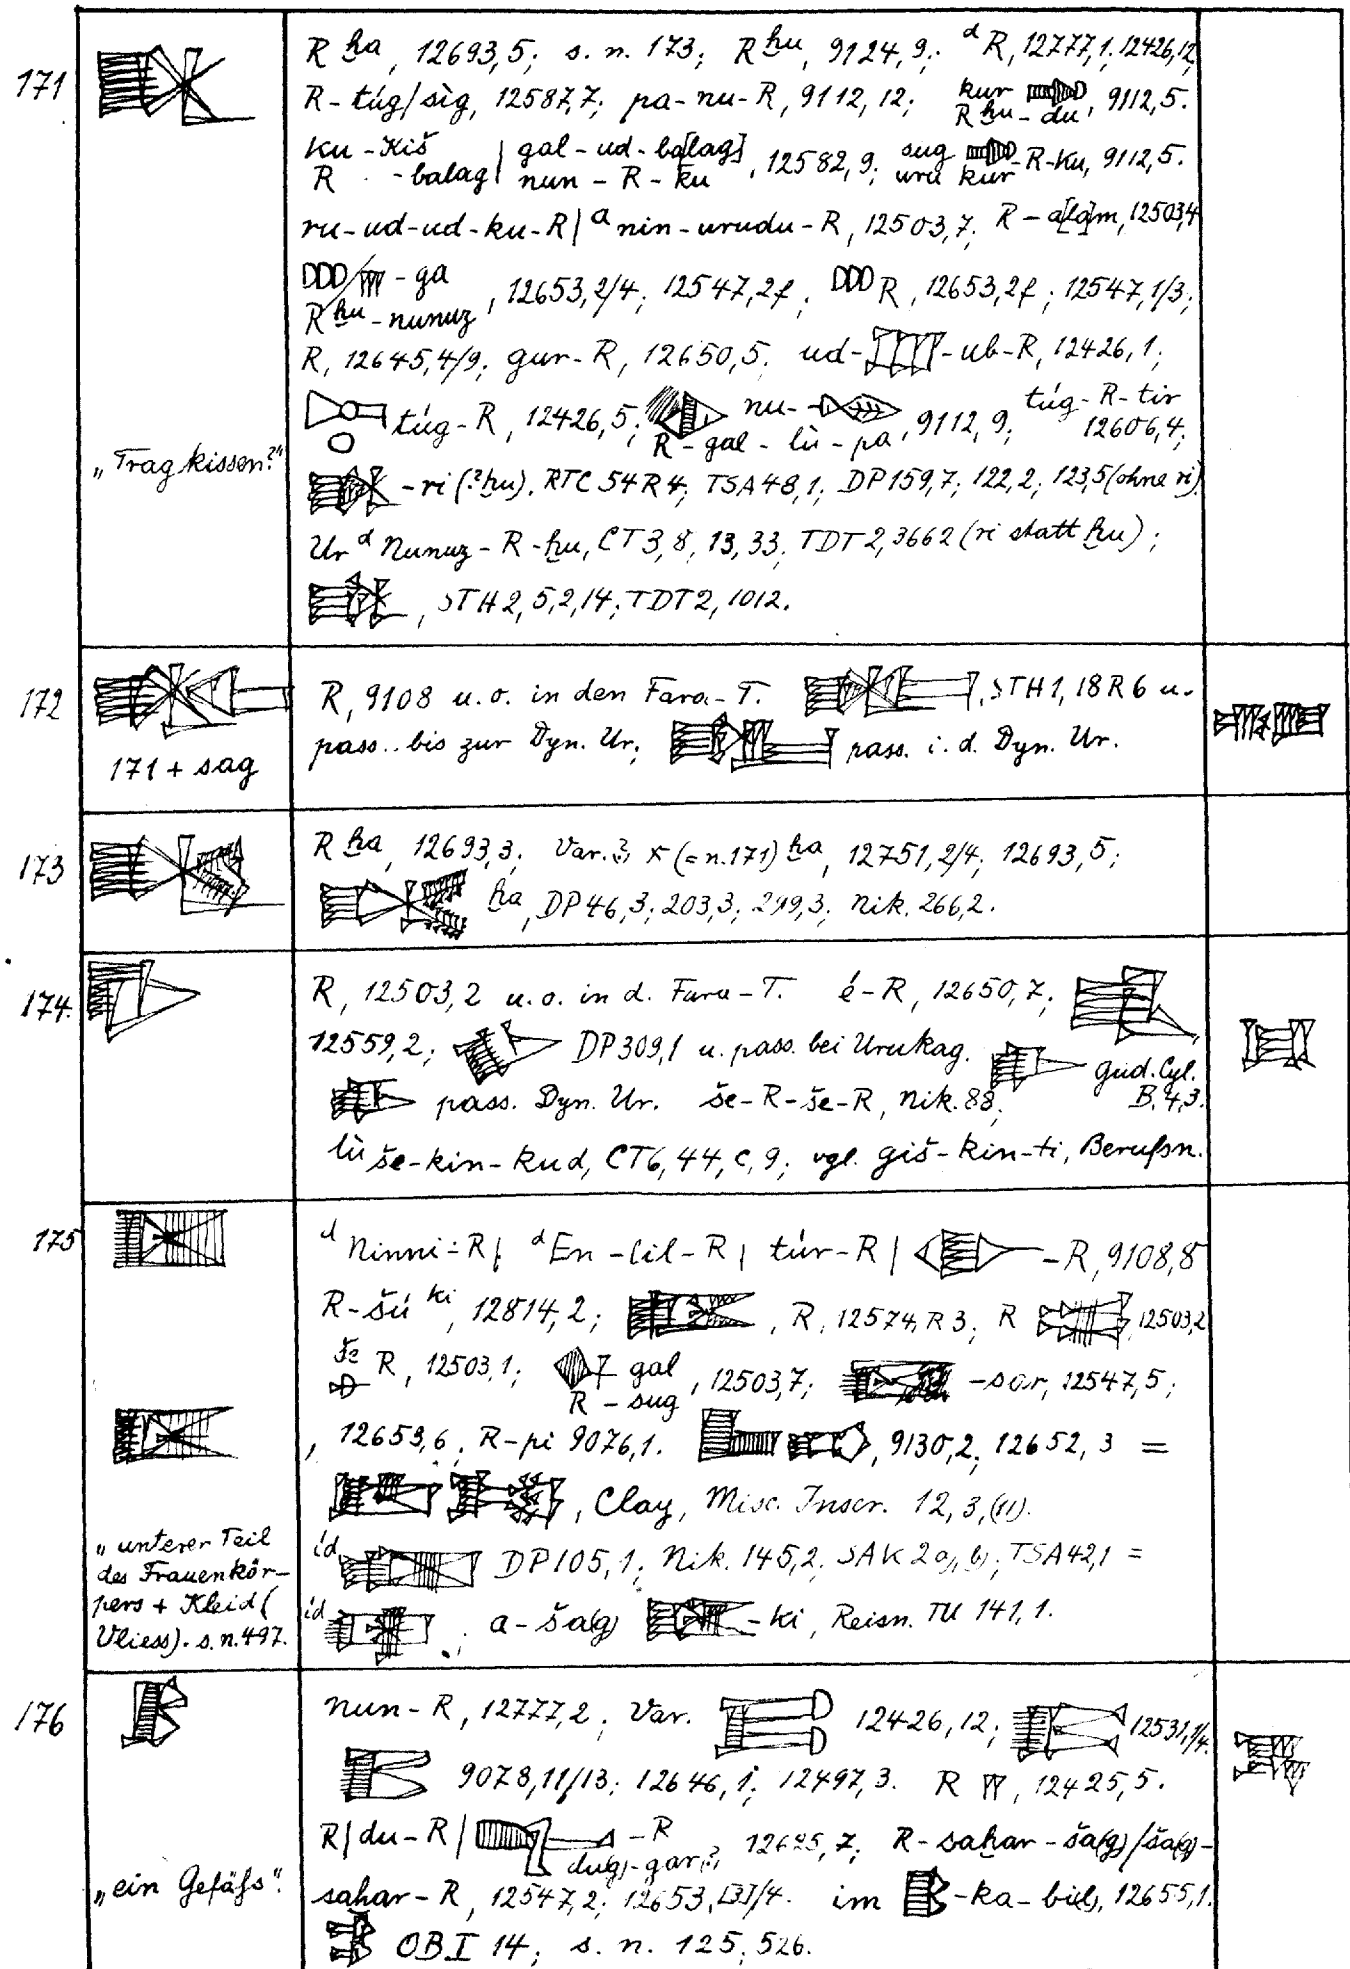 171
R ḫa, 12693,5; s. n. 173; R ḫu, 9124,9; ᵈR, 12777,1. 12426,12
R-túg/sìg, 12587,7; pa-nu-R, 9112,12; kur R ḫu-du, 9112,5.
Ku-Kiš R -balag | gal-ud-ba[lag] nun-R-ku, 12582,9; sug uru kur -R-Ku, 9112,5.
ru-ud-ud-ku-R | nin-urudu-R, 12503,7. R-a[la]m, 12503,4
-ga R ḫu-nunuz, 12653,2/4; 12547,2f; R, 12653,2f; 12547,1/3;
R, 12645,4/9; gur-R, 12650,5. ud- -ub-R, 12426,1;
túg-R, 12426,5; nu- R-gal-lù-pa, 9112,9; túg-R-tir 12606,4;
„Tragkissen?"
-ri (?ḫu). RTC 54 R 4; TSA 48,1; DP 159,7; 122,2; 123,5 (ohne ri).
Ur ᵈNunuz-R-ḫu, CT 3,8,13,33. TDT 2,3662 (ri statt ḫu);
, STH 2,5,2,14; TDT 2,1012.
172
171 + sag
R, 9108 u. o. in den Fara-T. , STH 1,18 R 6 u.
pass. bis zur Dyn. Ur; pass. i. d. Dyn. Ur.
173
R ḫa, 12693,3; Var.? x (= n. 171) ḫa, 12751,2/4; 12693,5;
ḫa, DP 46,3; 203,3; 299,3; Nik. 266,2.
174.
R, 12503,2 u. o. in d. Fara-T. é-R, 12650,7;
12559,2; DP 309,1 u. pass. bei Urukag. Gud. Cyl. B. 4,3.
pass. Dyn. Ur. še-R-še-R, Nik. 88.
lù še-kin-kud, CT 6,44,c,9; vgl. giš-kin-ti, Berufsn.
175
ᵈNinni-R | ᵈEn-lil-R | túr-R | -R, 9108,8
R-šú ᵏⁱ, 12814,2; , R, 12574, R 3; R 12503,2
še R, 12503,1; gal R-sug, 12503,7; -sar, 12547,5;
, 12653,6, R-pi 9076,1. , 9130,2; 12652,3 =
, Clay, Misc. Inscr. 12,3,(11).
„unterer Teil
des Frauenkör-
pers + Kleid (
Vliess). s. n. 497.
íd DP 105,1; Nik. 145,2; SAK 2 a), b); TSA 42,1 =
íd ; a-ša(g) -ki, Reisn. TU 141,1.
176
nun-R, 12777,2; Var. 12426,12; 12531,1/4.
9078,11/13; 12646,1; 12497,3. R , 12425,5.
R | du-R | -R du(g)-gar?, R-saḫar-ša(g)/ša(g)-
„ein Gefäfs"
saḫar-R, 12547,2; 12653,[3]/4. im -ka-, 12655,1.
OBI 14; s. n. 125; 526.